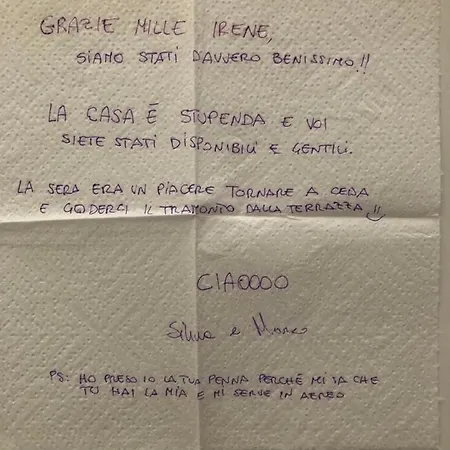 GRAZIE MILLE IRENE,
SIAMO STATI DAVVERO BENISSIMO!!
LA CASA É STUPENDA E VOI
SIETE STATI DISPONIBILI E GENTILI.
LA SERA ERA UN PIACERE TORNARE A CENA
E GODERCI IL TRAMONTO DALLA TERRAZZA!!
CIAOOOO
Silvia e Marco
PS: HO PRESO IO LA TUA PENNA PERCHÉ MI SA CHE
TU HAI LA MIA E MI SERVE IN AEREO